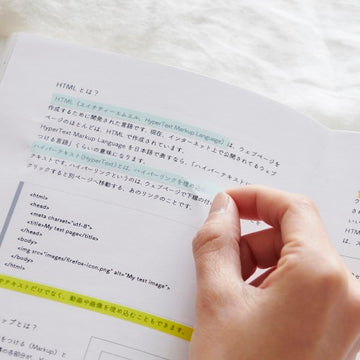 HTML とは？
HTML（エイチティーエムエル、HyperText Markup Language）は、ウェブページを
作成するために開発された言語です。現在、インターネット上で公開されてるウェブ
ページのほとんどは、HTML で作成されています。
HyperText Markup Language を日本語で表すなら、「ハイパーテキストに
つける言語」くらいの意味になります。
ハイパーテキスト(HyperText)とは、ハイパーリンクを埋め込
テキストです。ハイパーリンクというのは、ウェブページで下線の
クリックすると別ページへ移動する、あのリンクのことです。
<html>
<head>
<meta charset="utf-8">
<title>My test page</title>
</head>
<body>
<img src="images/firefox-icon.png" alt="My test image">
</body>
</html>
テキストだけでなく、動画や画像を埋め込むこともできます。
ップとは？
（Markup）と